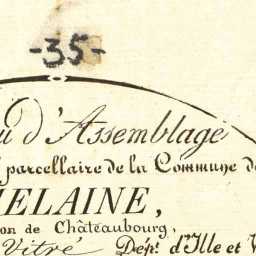 -35-
d'Assemblage
parcellaire de la Commune de
ELAINE,
on de Châteaubourg,
Vitré Dépt. d'Ille et V